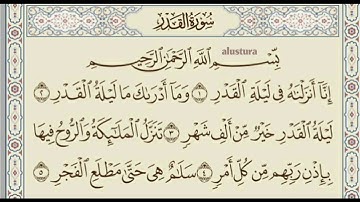 سُورَةُ الْقَدْرِ
alustura
بِسْمِ اللَّهِ الرَّحْمَٰنِ الرَّحِيمِ
إِنَّا أَنزَلْنَٰهُ فِى لَيْلَةِ الْقَدْرِ ١ وَمَا أَدْرَىٰكَ مَا لَيْلَةُ الْقَدْرِ ٢
لَيْلَةُ الْقَدْرِ خَيْرٌ مِّنْ أَلْفِ شَهْرٍ ٣ تَنَزَّلُ الْمَلَٰئِكَةُ وَالرُّوحُ فِيهَا
بِإِذْنِ رَبِّهِم مِّن كُلِّ أَمْرٍ ٤ سَلَٰمٌ هِىَ حَتَّىٰ مَطْلَعِ الْفَجْرِ ٥